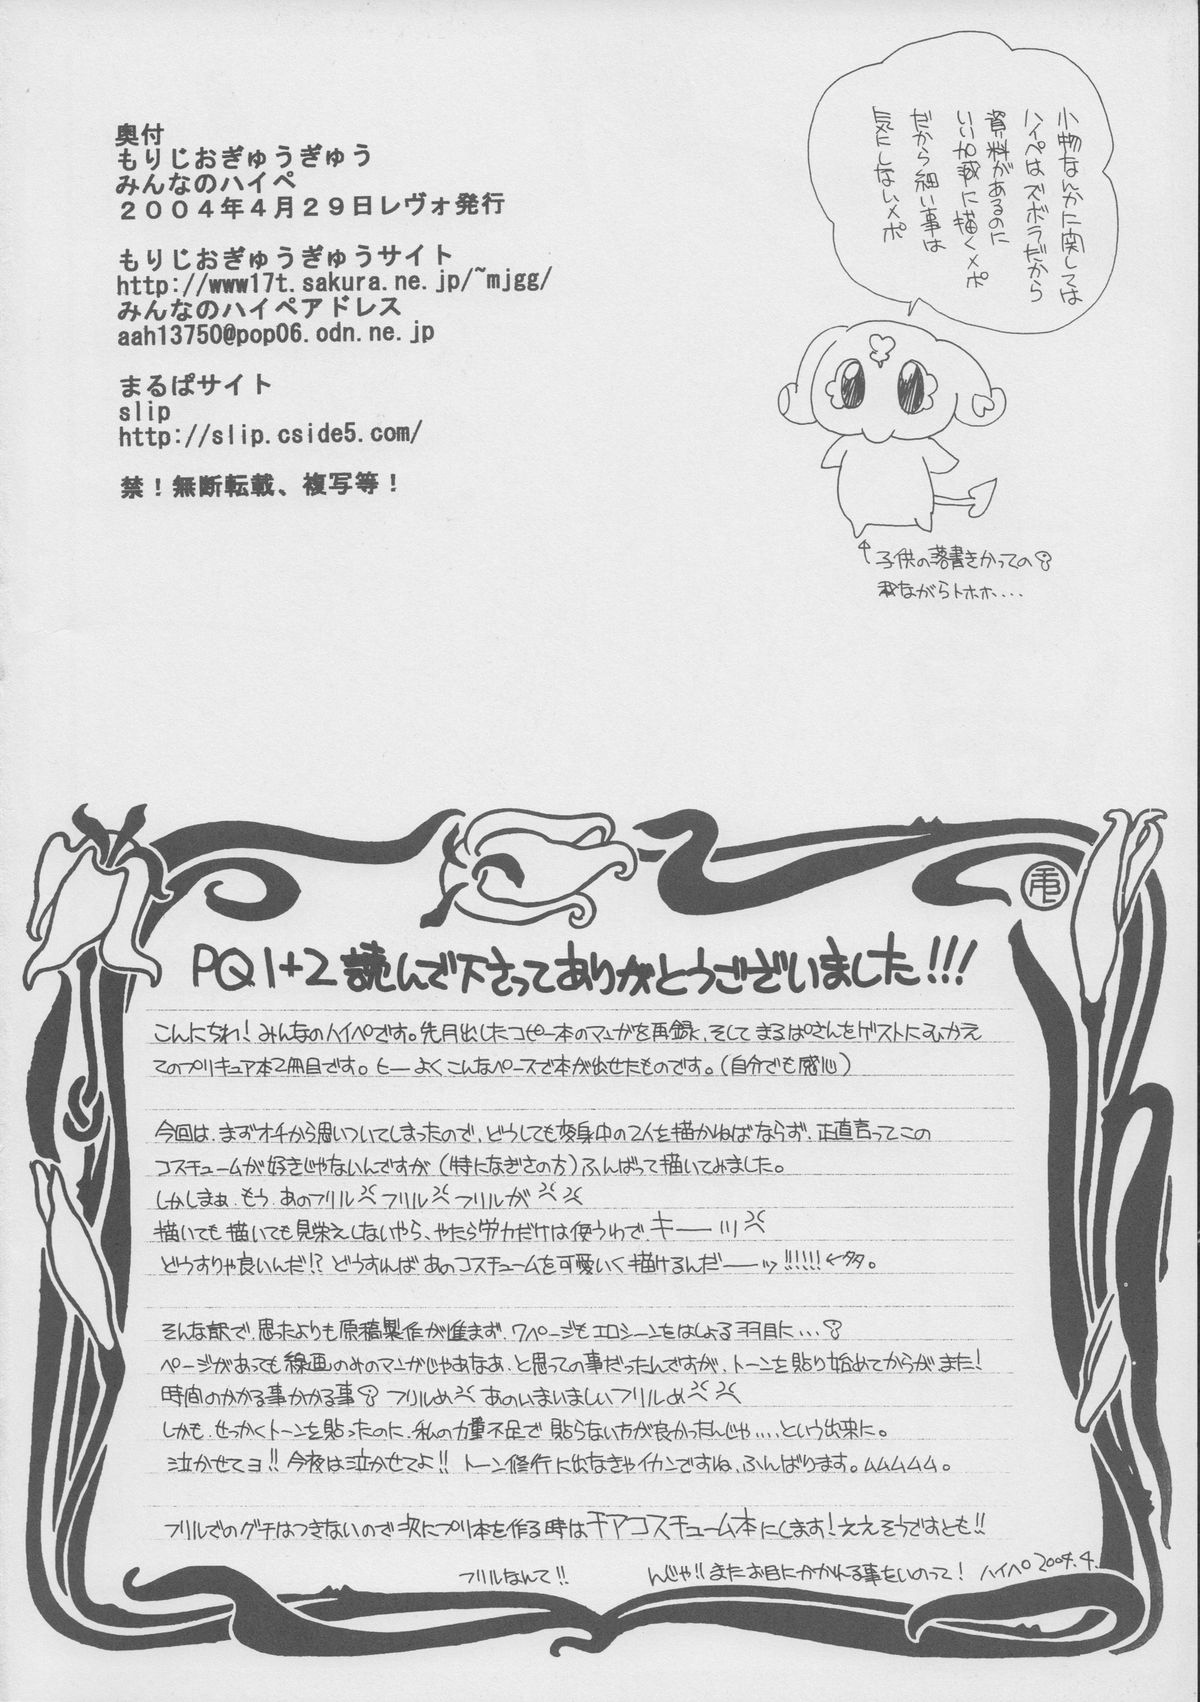 奥付
もりじおぎゅうぎゅう
みんなのハイペ
2004年4月29日レヴォ発行
もりじおぎゅうぎゅうサイト
http://www17t.sakura.ne.jp/~mjgg/
みんなのハイペアドレス
aah13750@pop06.odn.ne.jp
まるぱサイト
slip
http://slip.cside5.com/
禁!無断転載、複写等!
小物なんかに関しては
ハイペはズボラだから
資料があるのに
いい加減に描くメポ
だから細い事は
気にしないメポ
子供の落書きかっての
我ながらトホホ…
PQ1+2 読んで下さってありがとうございました!!!
こんにちわ!みんなのハイペです。先月出したコピー本のマンガを再録、そして まるぱさんをゲストにむかえ
てのプリキュア本2冊目です。ヒー よくこんなペースで本が出せたものです。(自分でも感心)
今回は、まずオチから思いついてしまったので、どうしても変身中の2人を描かねばならず、正直言ってこの
コスチュームが好きじゃないんですが(特になぎさの方)ふんばって描いてみました。
しかしまぁ、もう、あのフリル フリル フリルが
描いても描いても見栄えしないやら、やたら労力だけは使うわで、キーーッ
どうすりゃ良いんだ!? どうすれば あのコスチュームを可愛いく描けるんだーーッ!!!!!!←多。
そんな訳で、思ったよりも原稿製作が進まず、7ページもエロシーンをはしょる羽目に…
ページがあっても線画のみのマンガじゃあなあ、と思っての事だったんですが、トーンを貼り始めてからが、また!
時間のかかる事かかる事 フリルめ あのいまいましいフリルめ
しかも、せっかくトーンを貼ったのに、私の力量不足で貼らない方が良かったんじゃ….という出来に。
泣かせてヨ!! 今夜は泣かせてよ!! トーン修行に出なきゃイカンですね、ふんばります。ムムムムム。
フリルでのグチはつきないので次にプリ本を作る時はチアコスチューム本にします!ええそうですとも!!
フリルなんて!!
んじゃ!!またお目にかかれる事をいのって! ハイペ 2004.4.